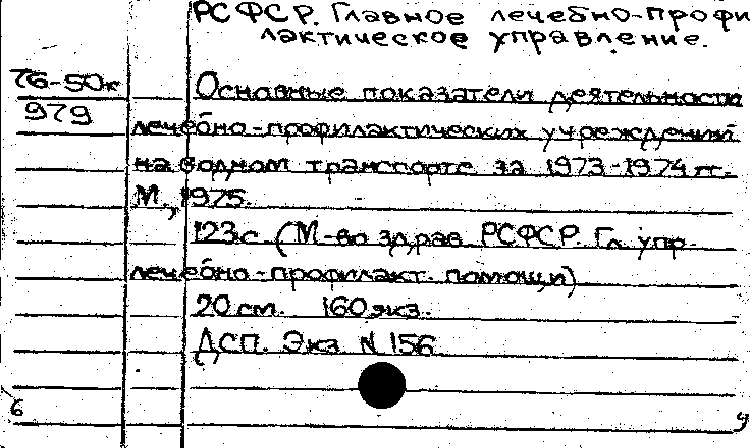 РСФСР. Главное лечебно-профи
лактическое управление.
76-50к
979
Основные показатели деятельности
лечебно-профилактических учреждений
на водном транспорте за 1973-1974 гг.
М., 1975.
123 с. (М-во здрав. РСФСР. Гл. упр.
лечебно-профилакт. помощи)
20 см. 160 экз.
ДСП. Экз. N 156.
6